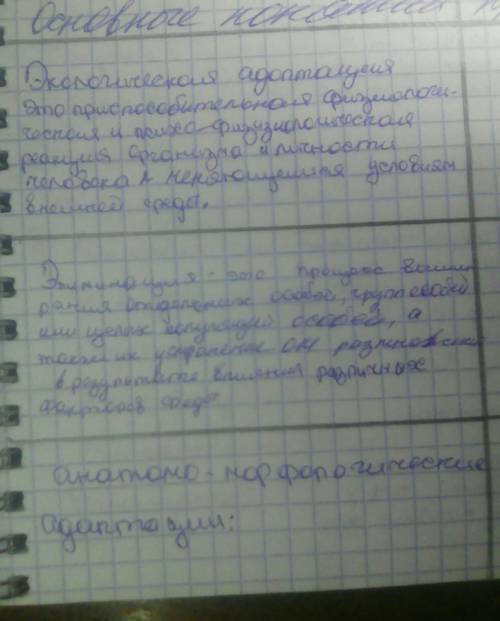 Основные
Экологическая адаптация
это приспособительная физиологи-
ческая и психо-физиологическая
реакция организма и личности
человека к меняющимся условиям
внешней среды.
Элиминация - это процесс вымы
рания отдельных особей, групп особей
или целых популяций особей, а
также их устранение от размножения
в результате влияния различных
факторов среды
анатомо-морфологические
адаптации: